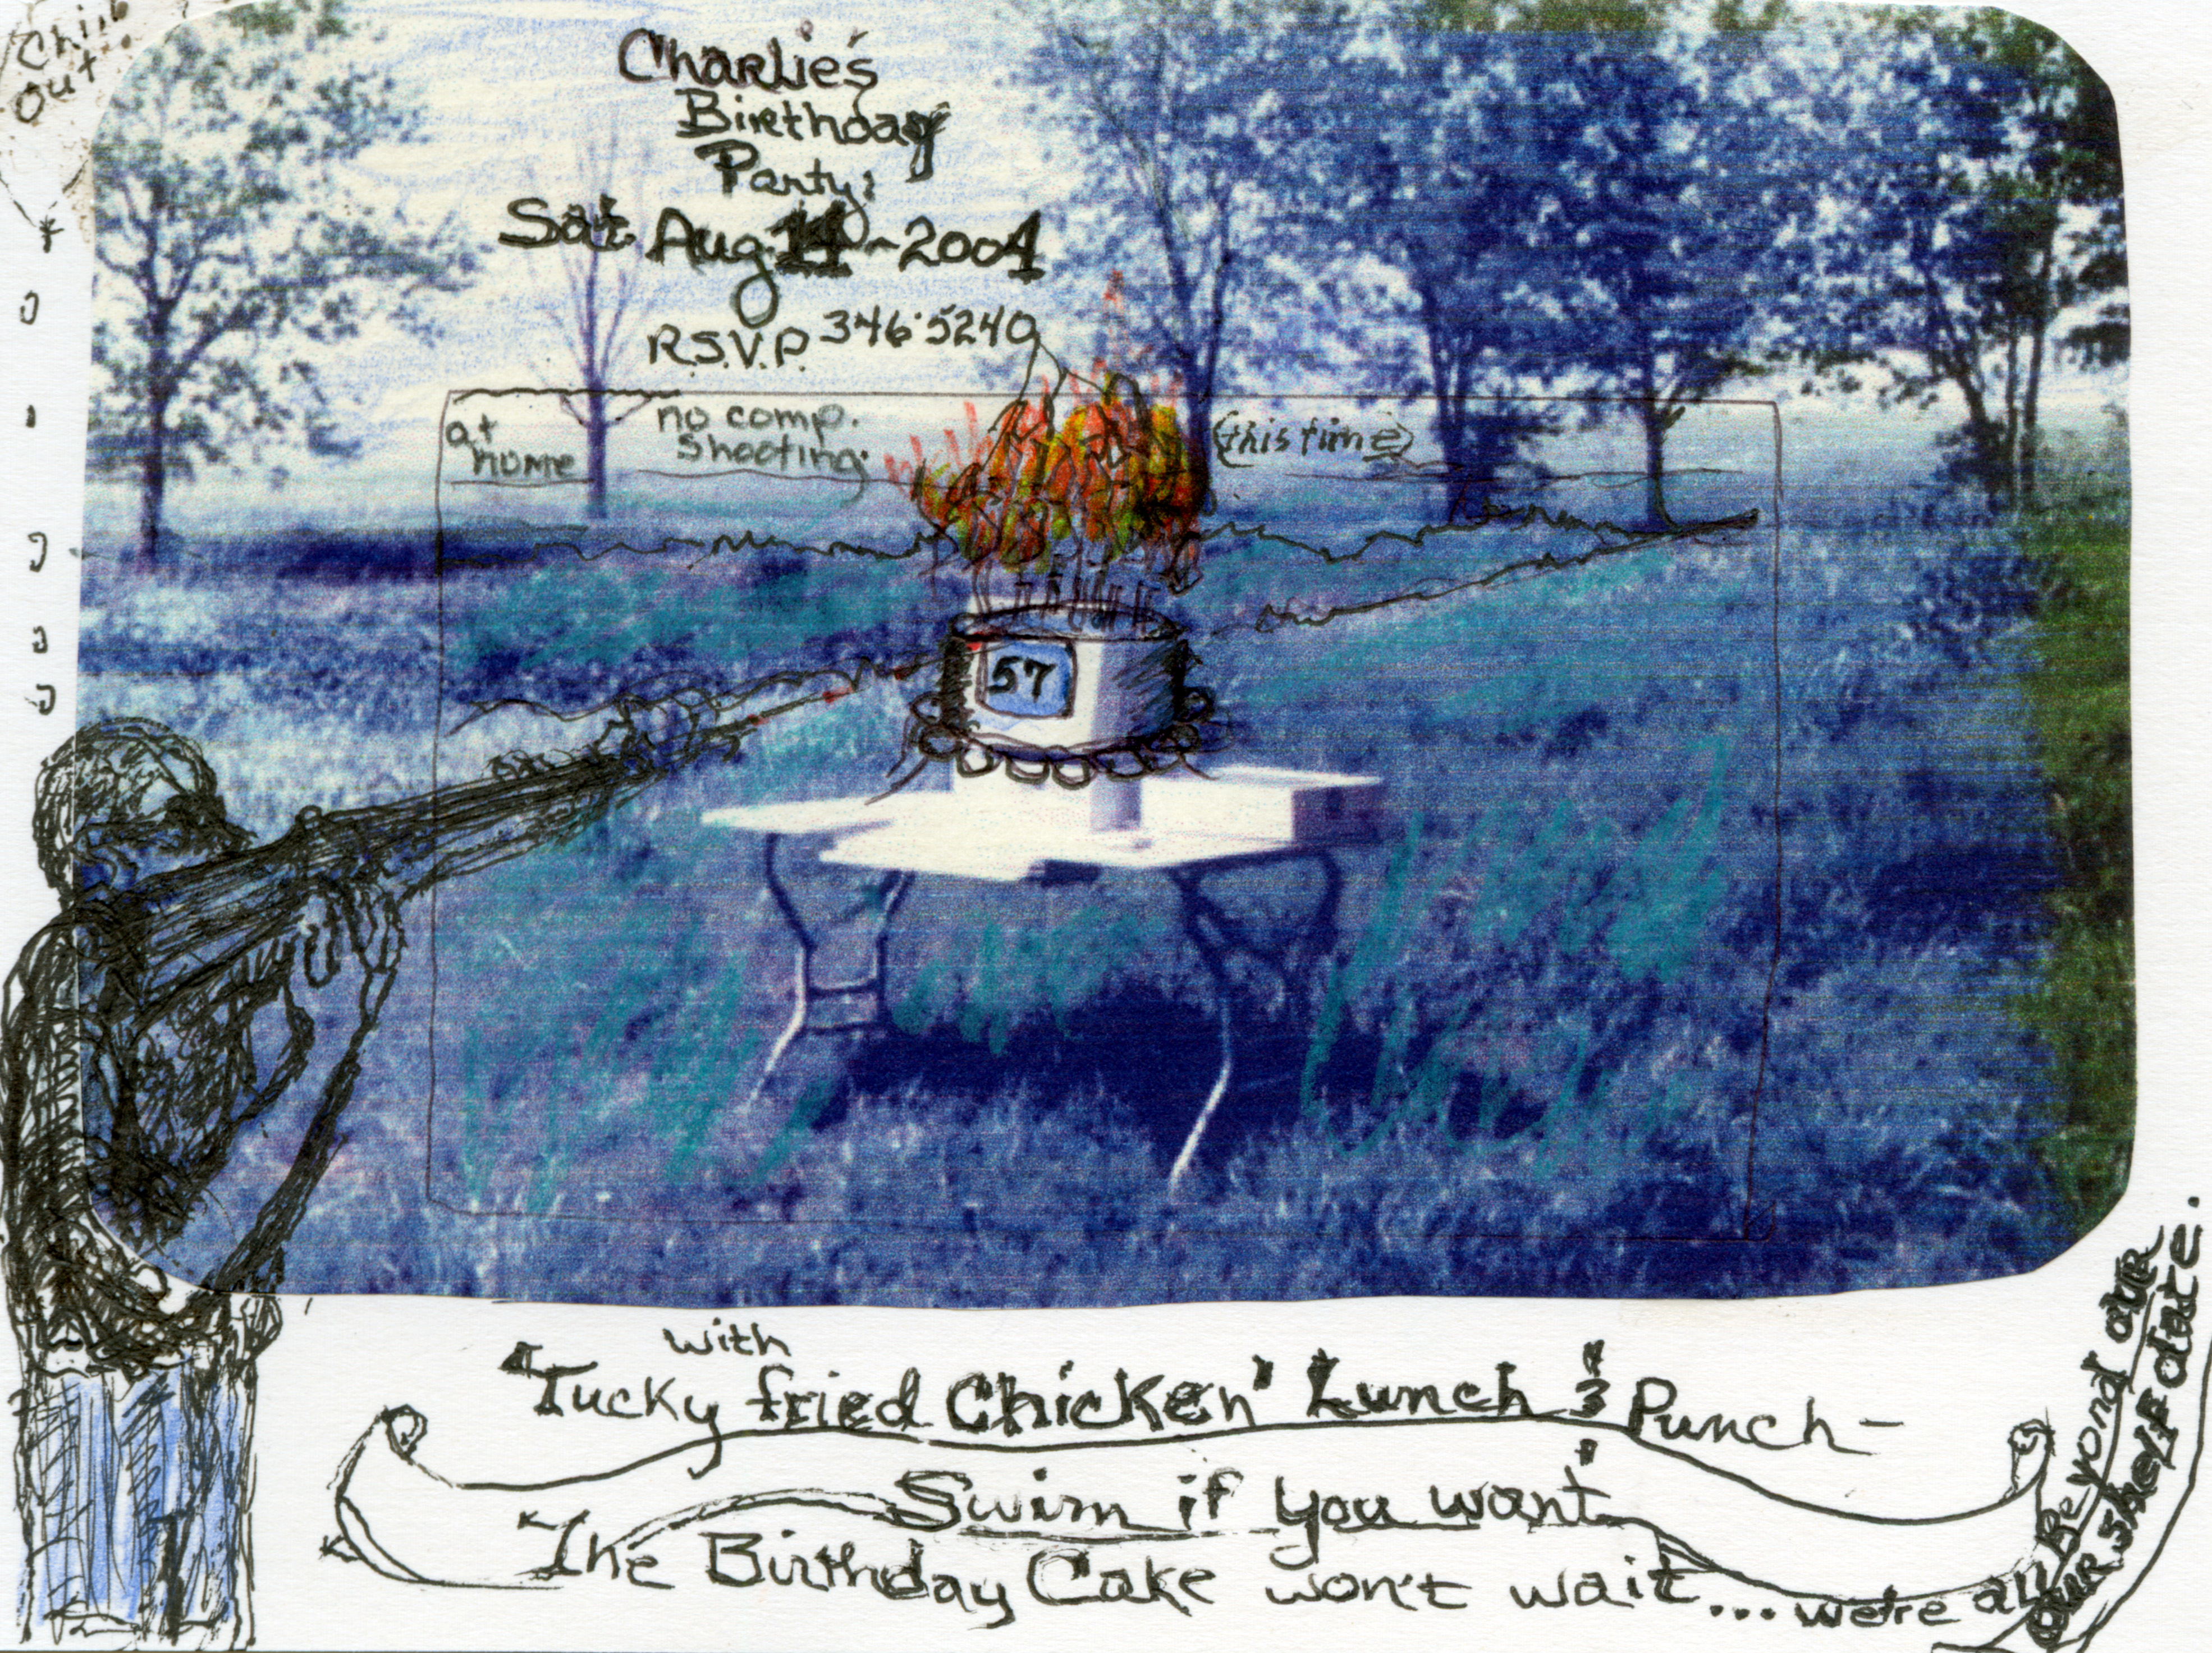 Chill
Out
Charlie's
Birthday
Party:
Sat Aug 14-2004
R.S.V.P. 346·5240
at
home
no comp.
shooting.
(this time)
57
with
"Tucky fried Chicken" Lunch & Punch-
"Swim if you want"
The Birthday Cake won't wait... we're all Beyond our
our shelf date.